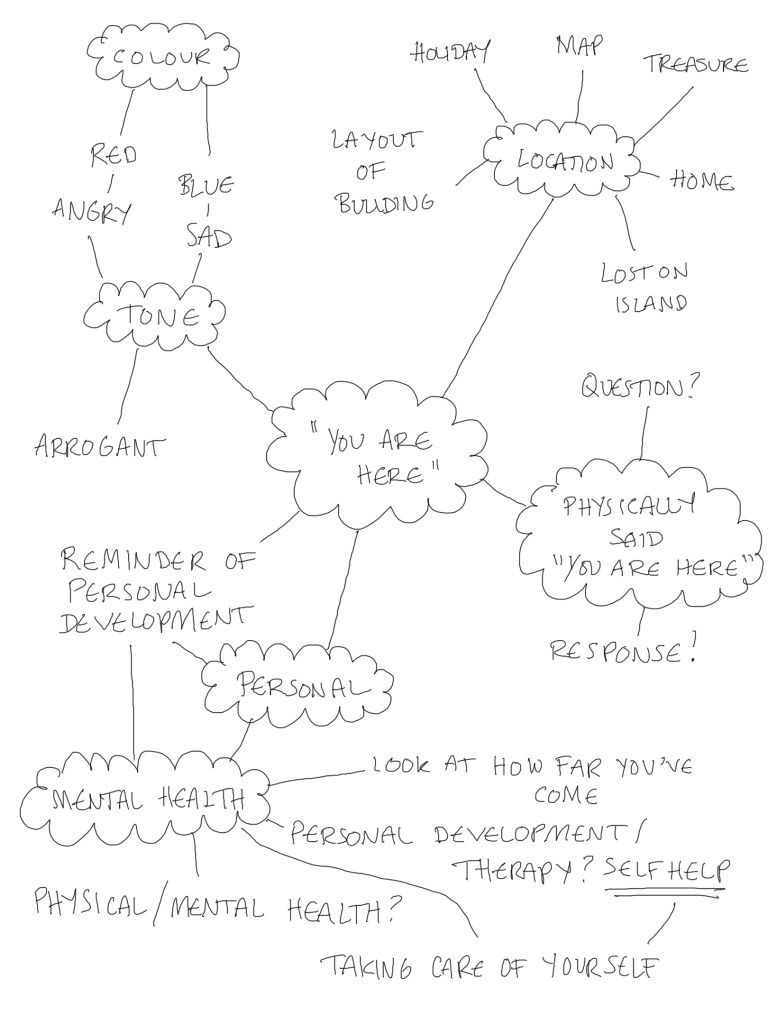 COLOUR
RED
ANGRY
BLUE
SAD
TONE
ARROGANT
HOLIDAY
MAP
TREASURE
LAYOUT
OF
BUILDING
LOCATION
HOME
LOST ON
ISLAND
"YOU ARE
HERE"
QUESTION?
PHYSICALLY
SAID
"YOU ARE HERE"
RESPONSE!
REMINDER OF
PERSONAL
DEVELOPMENT
PERSONAL
MENTAL HEALTH
LOOK AT HOW FAR YOU'VE
COME
PERSONAL DEVELOPMENT/
THERAPY? SELF HELP
PHYSICAL/MENTAL HEALTH?
TAKING CARE OF YOURSELF